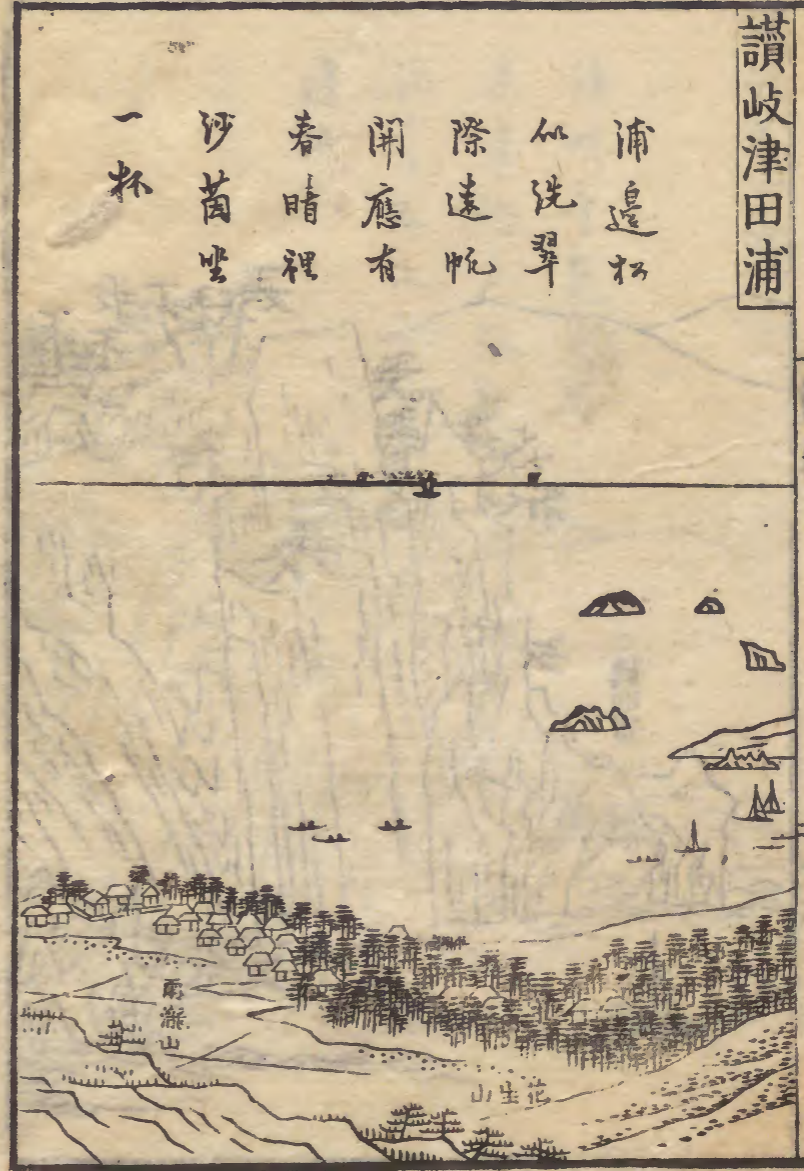 讃岐津田浦
浦邉松
似洗翠
際遠帆
開應有
春晴裡
沙茵坐
一杯
雨瀧山
花生山